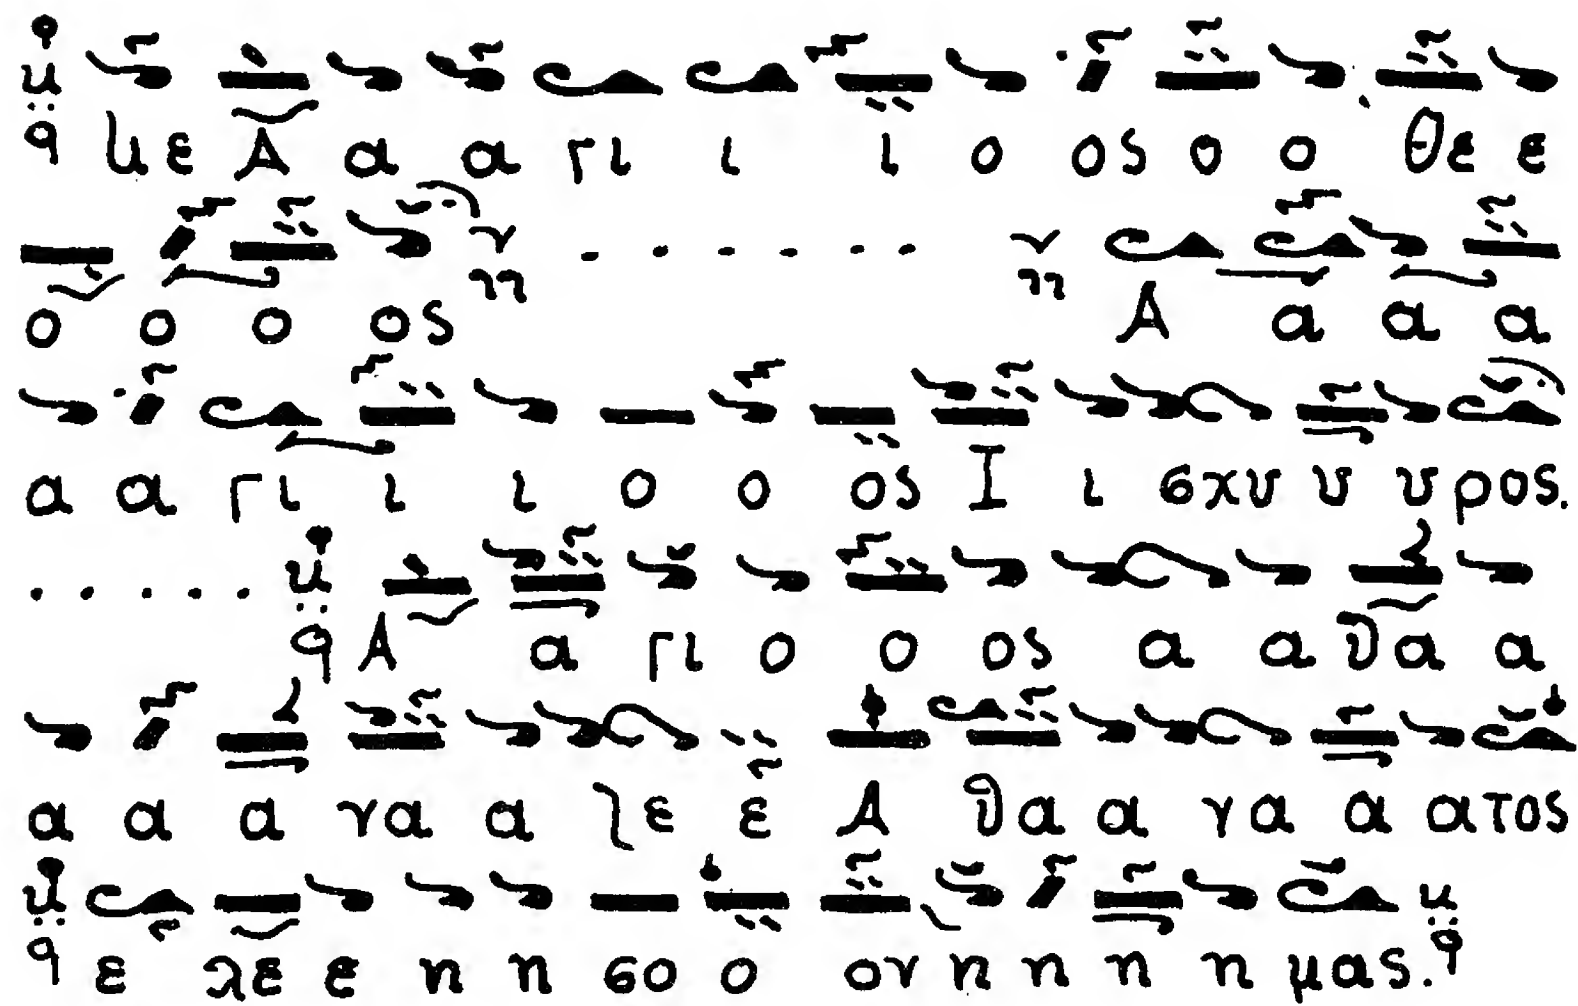 κ q Κε Α α α γι ι ι ο ος ο ο Θε ε
ο ο ο ος . . . . . . Α α α α
α α γι ι ι ο ο ος Ι ι σχυ υ υ ρος.
. . . . . κ q Α α γι ο ο ος α α θα α
α α α να α λε ε Α θα α να α ατος
κ q ε λε ε η η σο ο ον η η η η μας. κ q